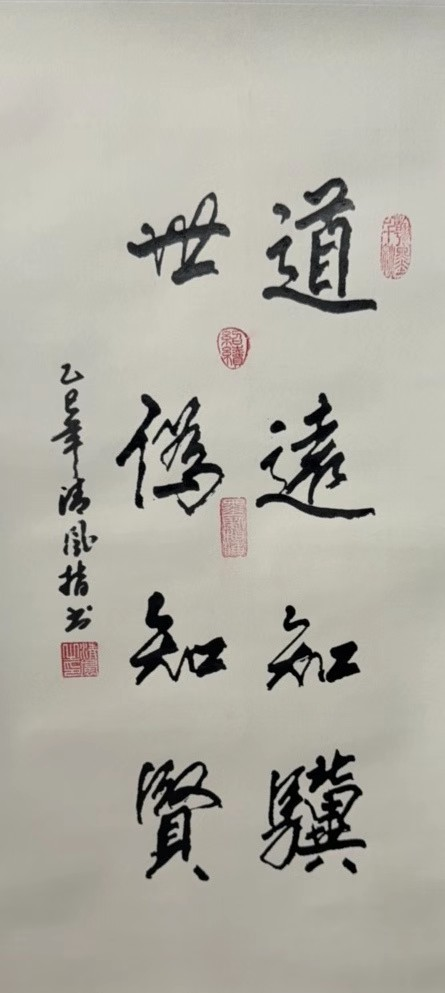 道遠知驥
世偽知賢
乙巳年清風指书